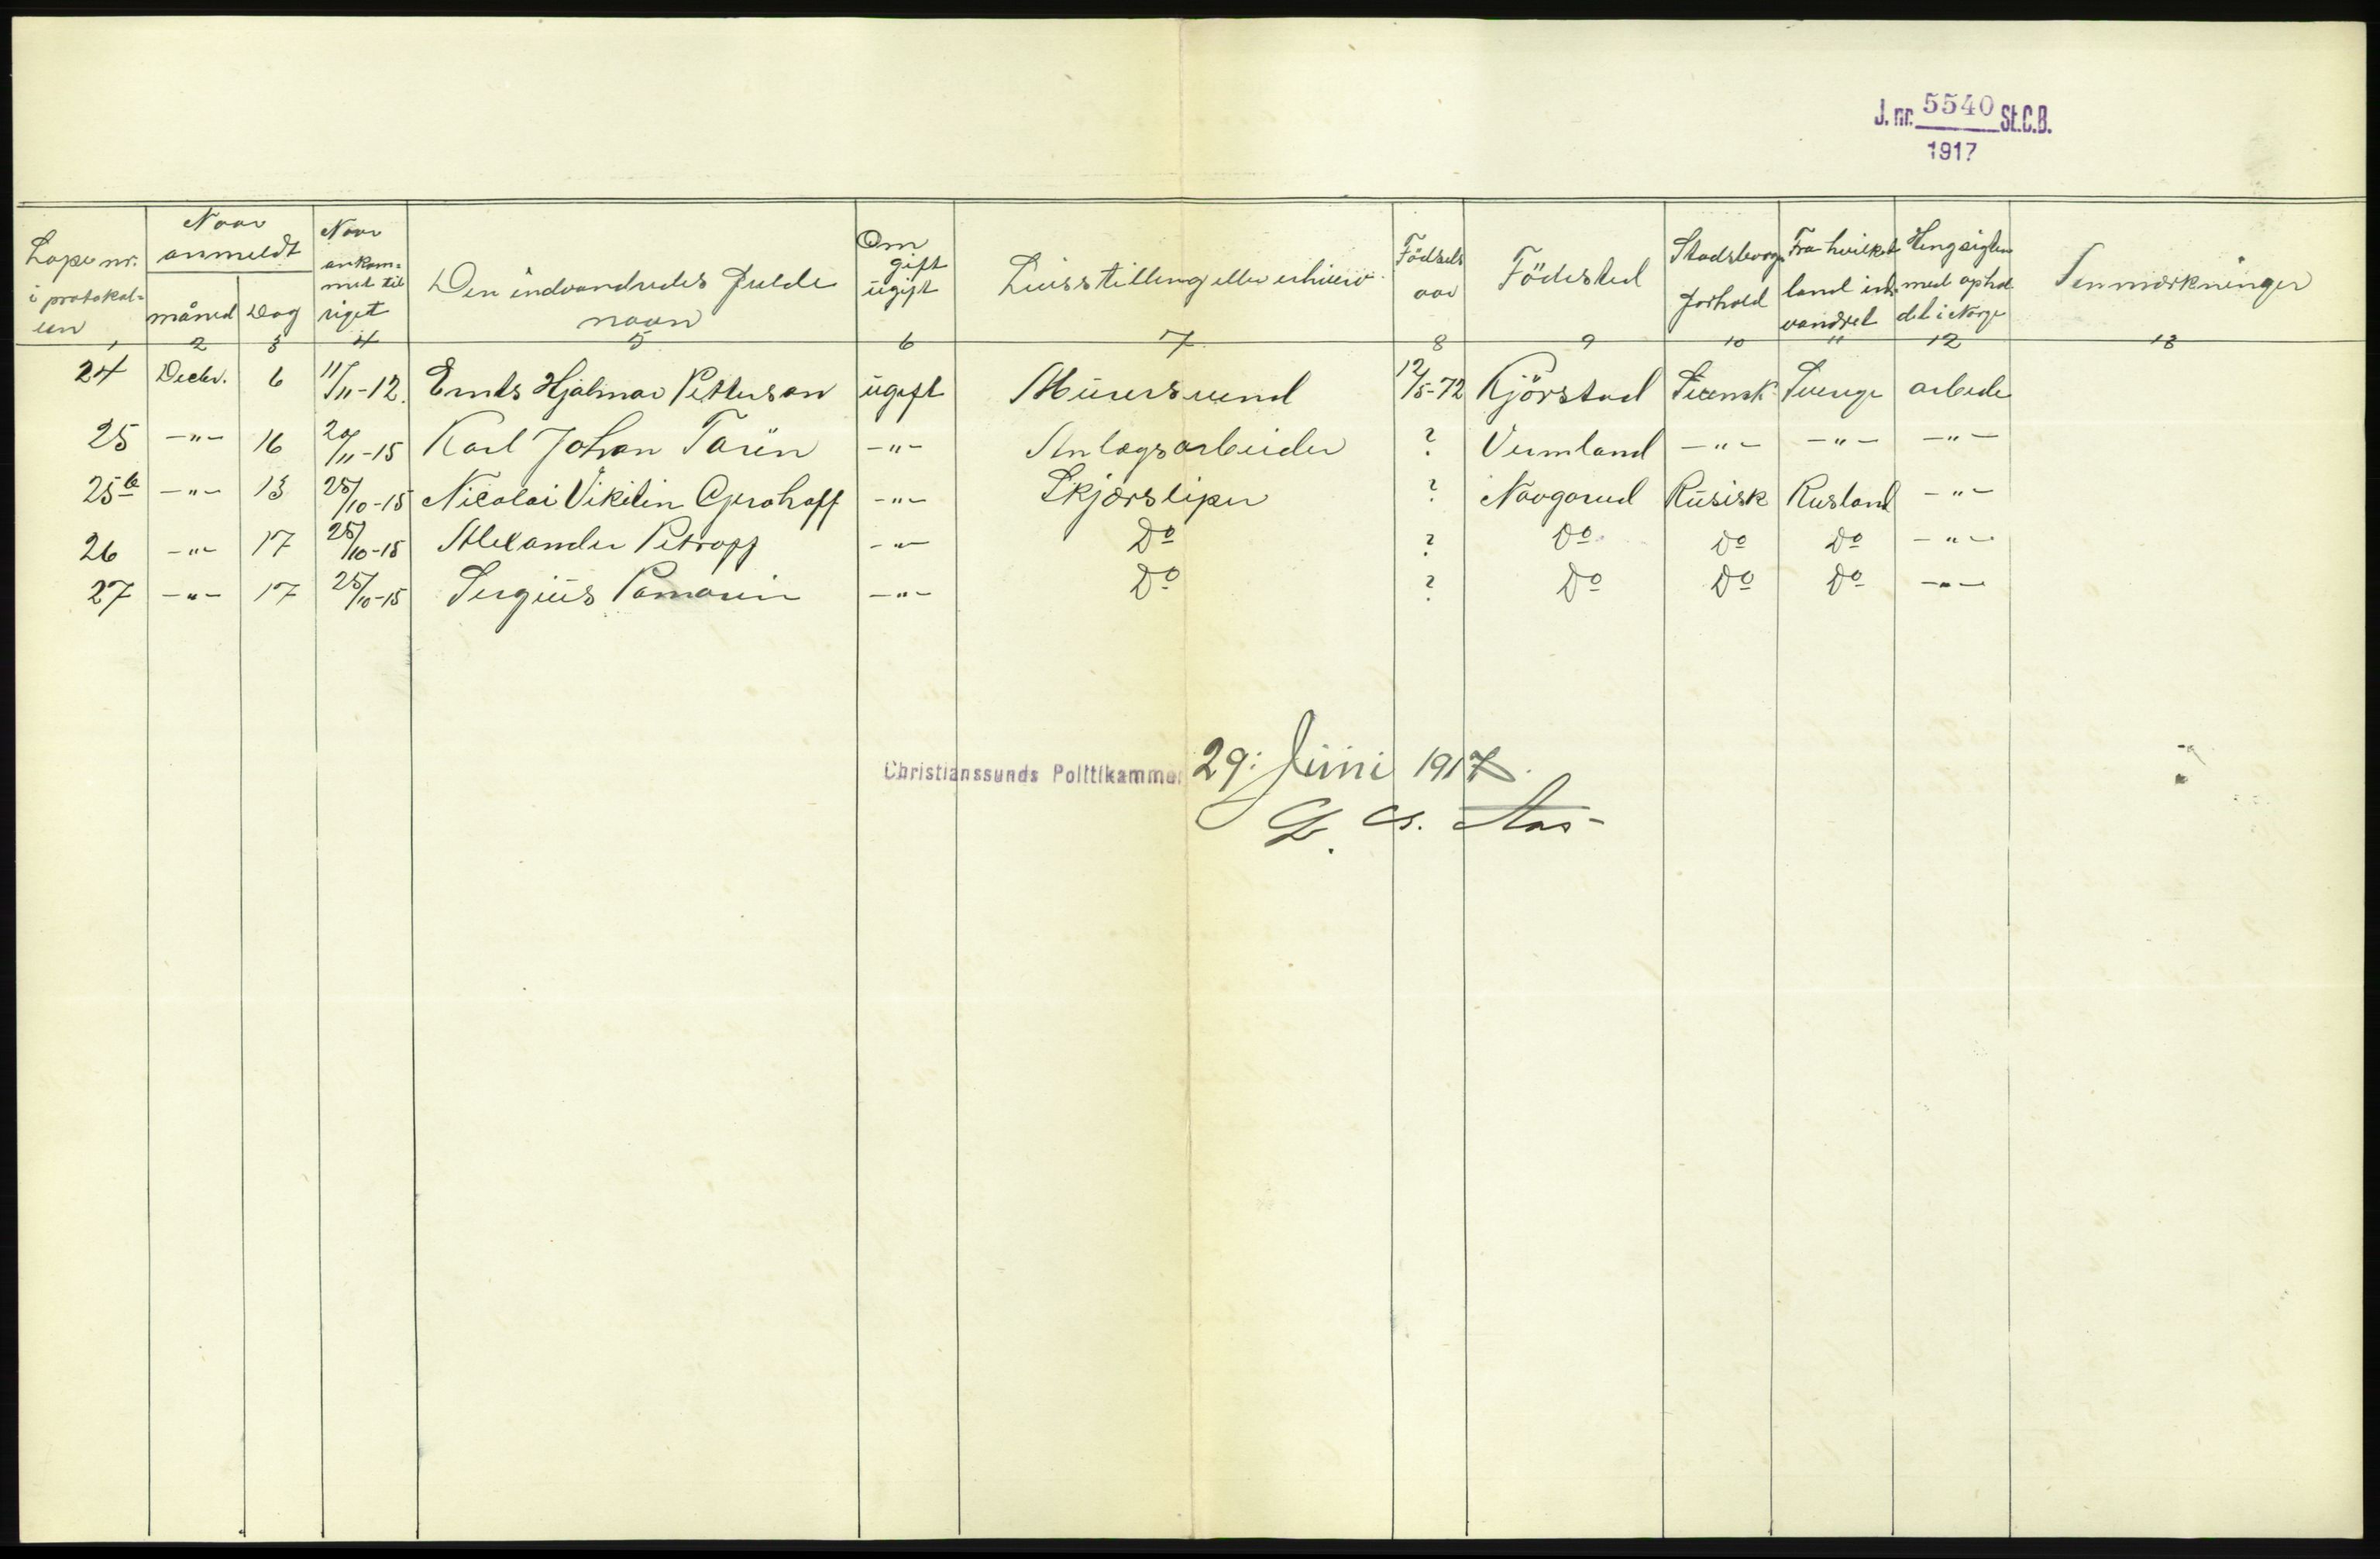 J. nr. 5540 St.C.B.
1917
Løpe nr. i protokollen
Naar anmeldt
måned
Dag
Naar ankommet til riget
Den indvandredes fulde navn
Om gift ugift
Livsstilling eller erhverv
Födsels aar
Födested
Statsborger forhold
Fra hvilket land indvandret
Hensigten med opholdet i Norge
Anmærkninger
1 2 3 4 5 6 7 8 9 10 11 12 13
24 Decbr. 6 11/11-12. Hjalmar Petterson ugift Murersvend 12/5-72 Kjörstad Svensk Sverige arbeide
25 -"- 16 20/11-15 Karl Johan -"- Anlægsarbeider ? Vermland -"- -"- -"-
25b -"- 13 25/10-15 Nicolai Vikitin -"- Skjærsliper ? Novgorod Rusisk Rusland -"-
26 -"- 17 25/10-15 Alexander Petroff -"- Do ? Do Do Do -"-
27 -"- 17 25/10-15 Sergius -"- Do ? Do Do Do -"-
Christianssunds Politikammer 29. Juni 1917.